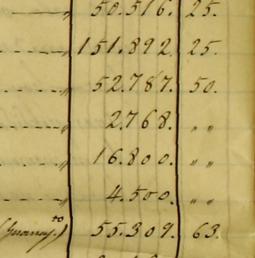 50.516. 25.
151.892. 25.
52.787. 50.
2.768. " "
16.800. " "
4.500. " "
55.309. 63.